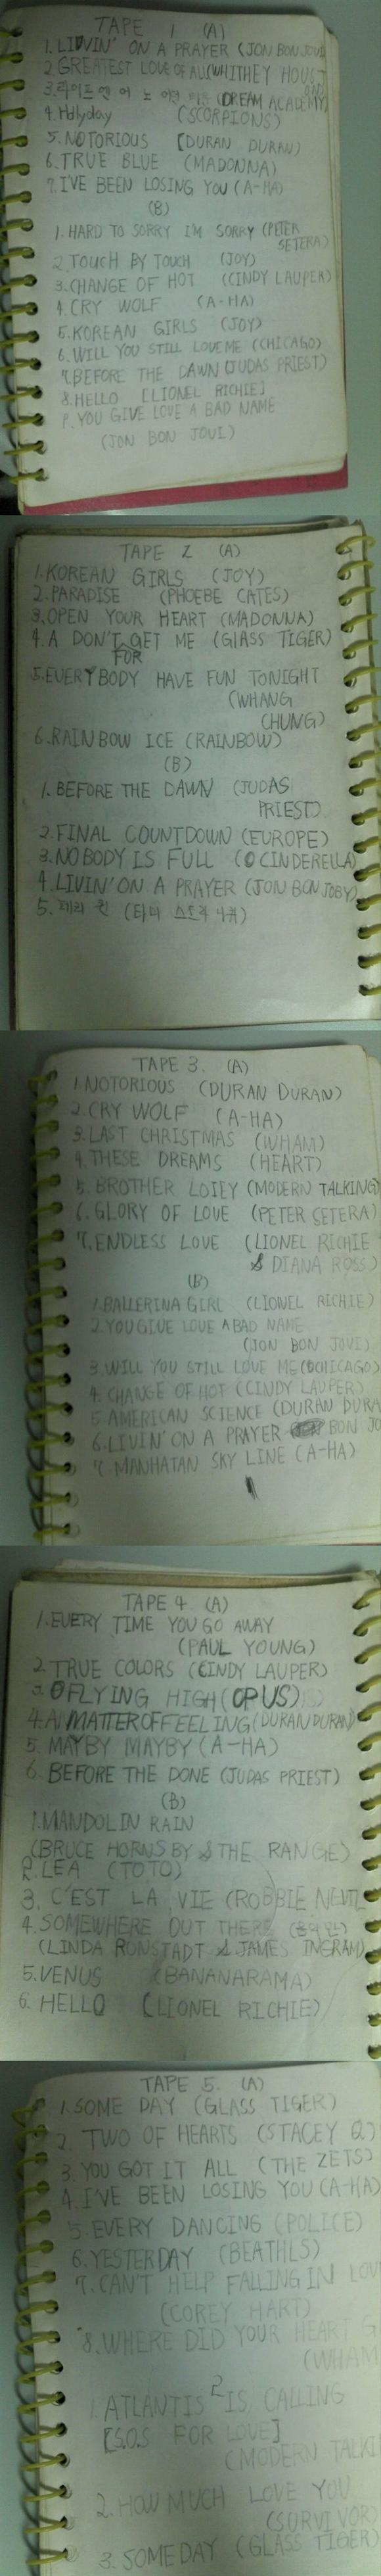 TAPE 1 (A)
1. LIVIN' ON A PRAYER (JON BON JOVI
2. GREATEST LOVE OF ALL (WHITHEY HOUST
3. 라이프 (DREAM ACADEMY)
4. Hollyday (SCORPIONS)
5. NOTORIOUS [DURAN DURAN)
6. TRUE BLUE (MADONNA)
7. I'VE BEEN LOSING YOU (A-HA)
(B)
1. HARD TO SORRY I'M SORRY (PETER
SETERA)
2. TOUCH BY TOUCH (JOY)
3. CHANGE OF HOT (CINDY LAUPER)
4. CRY WOLF (A-HA)
5. KOREAN GIRLS (JOY)
6. WILL YOU STILL LOVE ME (CHICAGO)
7. BEFORE THE DAWN (JUDAS PRIEST)
8. HELLO [LIONEL RICHIE]
9. YOU GIVE LOVE A BAD NAME
(JON BON JOVI)
TAPE 2 (A)
1. KOREAN GIRLS (JOY)
2. PARADISE (PHOEBE CATES)
3. OPEN YOUR HEART (MADONNA)
4. A DON'T GET ME (GLASS TIGER)
FOR
5. EVERYBODY HAVE FUN TONIGHT
(WHANG
CHUNG)
6. RAINBOW ICE (RAINBOW)
(B)
1. BEFORE THE DAWN (JUDAS
PRIEST)
2. FINAL COUNTDOWN (EUROPE)
3. NOBODY IS FULL (CINDERELLA)
4. LIVIN' ON A PRAYER (JON BON JOBY)
5.
TAPE 3. (A)
1. NOTORIOUS (DURAN DURAN)
2. CRY WOLF (A-HA)
3. LAST CHRISTMAS (WHAM)
4. THESE DREAMS (HEART)
5. BROTHER LOIEY (MODERN TALKING)
6. GLORY OF LOVE (PETER CETERA)
7. ENDLESS LOVE (LIONEL RICHIE
& DIANA ROSS)
(B)
1. BALLERINA GIRL (LIONEL RICHIE)
2. YOU GIVE LOVE A BAD NAME
(JON BON JOVI)
3. WILL YOU STILL LOVE ME (CHICAGO)
4. CHANGE OF HOT (CINDY LAUPER)
5. AMERICAN SCIENCE (DURAN DURA
6. LIVIN' ON A PRAYER BON JO
7. MANHATAN SKY LINE (A-HA)
TAPE 4 (A)
1. EVERY TIME YOU GO AWAY
(PAUL YOUNG)
2. TRUE COLORS (CINDY LAUPER)
3. FLYING HIGH (OPUS)
4. A MATTER OF FEELING (DURAN DURAN)
5. MAYBY MAYBY (A-HA)
6. BEFORE THE DONE (JUDAS PRIEST)
(B)
1. MANDOLIN RAIN
(BRUCE HORNSBY & THE RANGE)
2. LEA (TOTO)
3. C'EST LA VIE (ROBBIE NEVIL
4. SOMEWHERE OUT THERE
(LINDA RONSTADT & JAMES INGRAM)
5. VENUS (BANANARAMA)
6. HELLO [LIONEL RICHIE)
TAPE 5. (A)
1. SOME DAY (GLASS TIGER)
2. TWO OF HEARTS (STACEY Q)
3. YOU GOT IT ALL (THE ZETS)
4. I'VE BEEN LOSING YOU (A-HA)
5. EVERY DANCING (POLICE)
6. YESTERDAY (BEATHLS)
7. CAN'T HELP FALLING IN LOV
(COREY HART)
8. WHERE DID YOUR HEART G
(WHAM
2
1. ATLANTIS IS CALLING
[S.O.S FOR LOVE]
(MODERN TALKI
2. HOW MUCH LOVE YOU
(SURVIVOR)
3. SOMEDAY (GLASS TIGER)